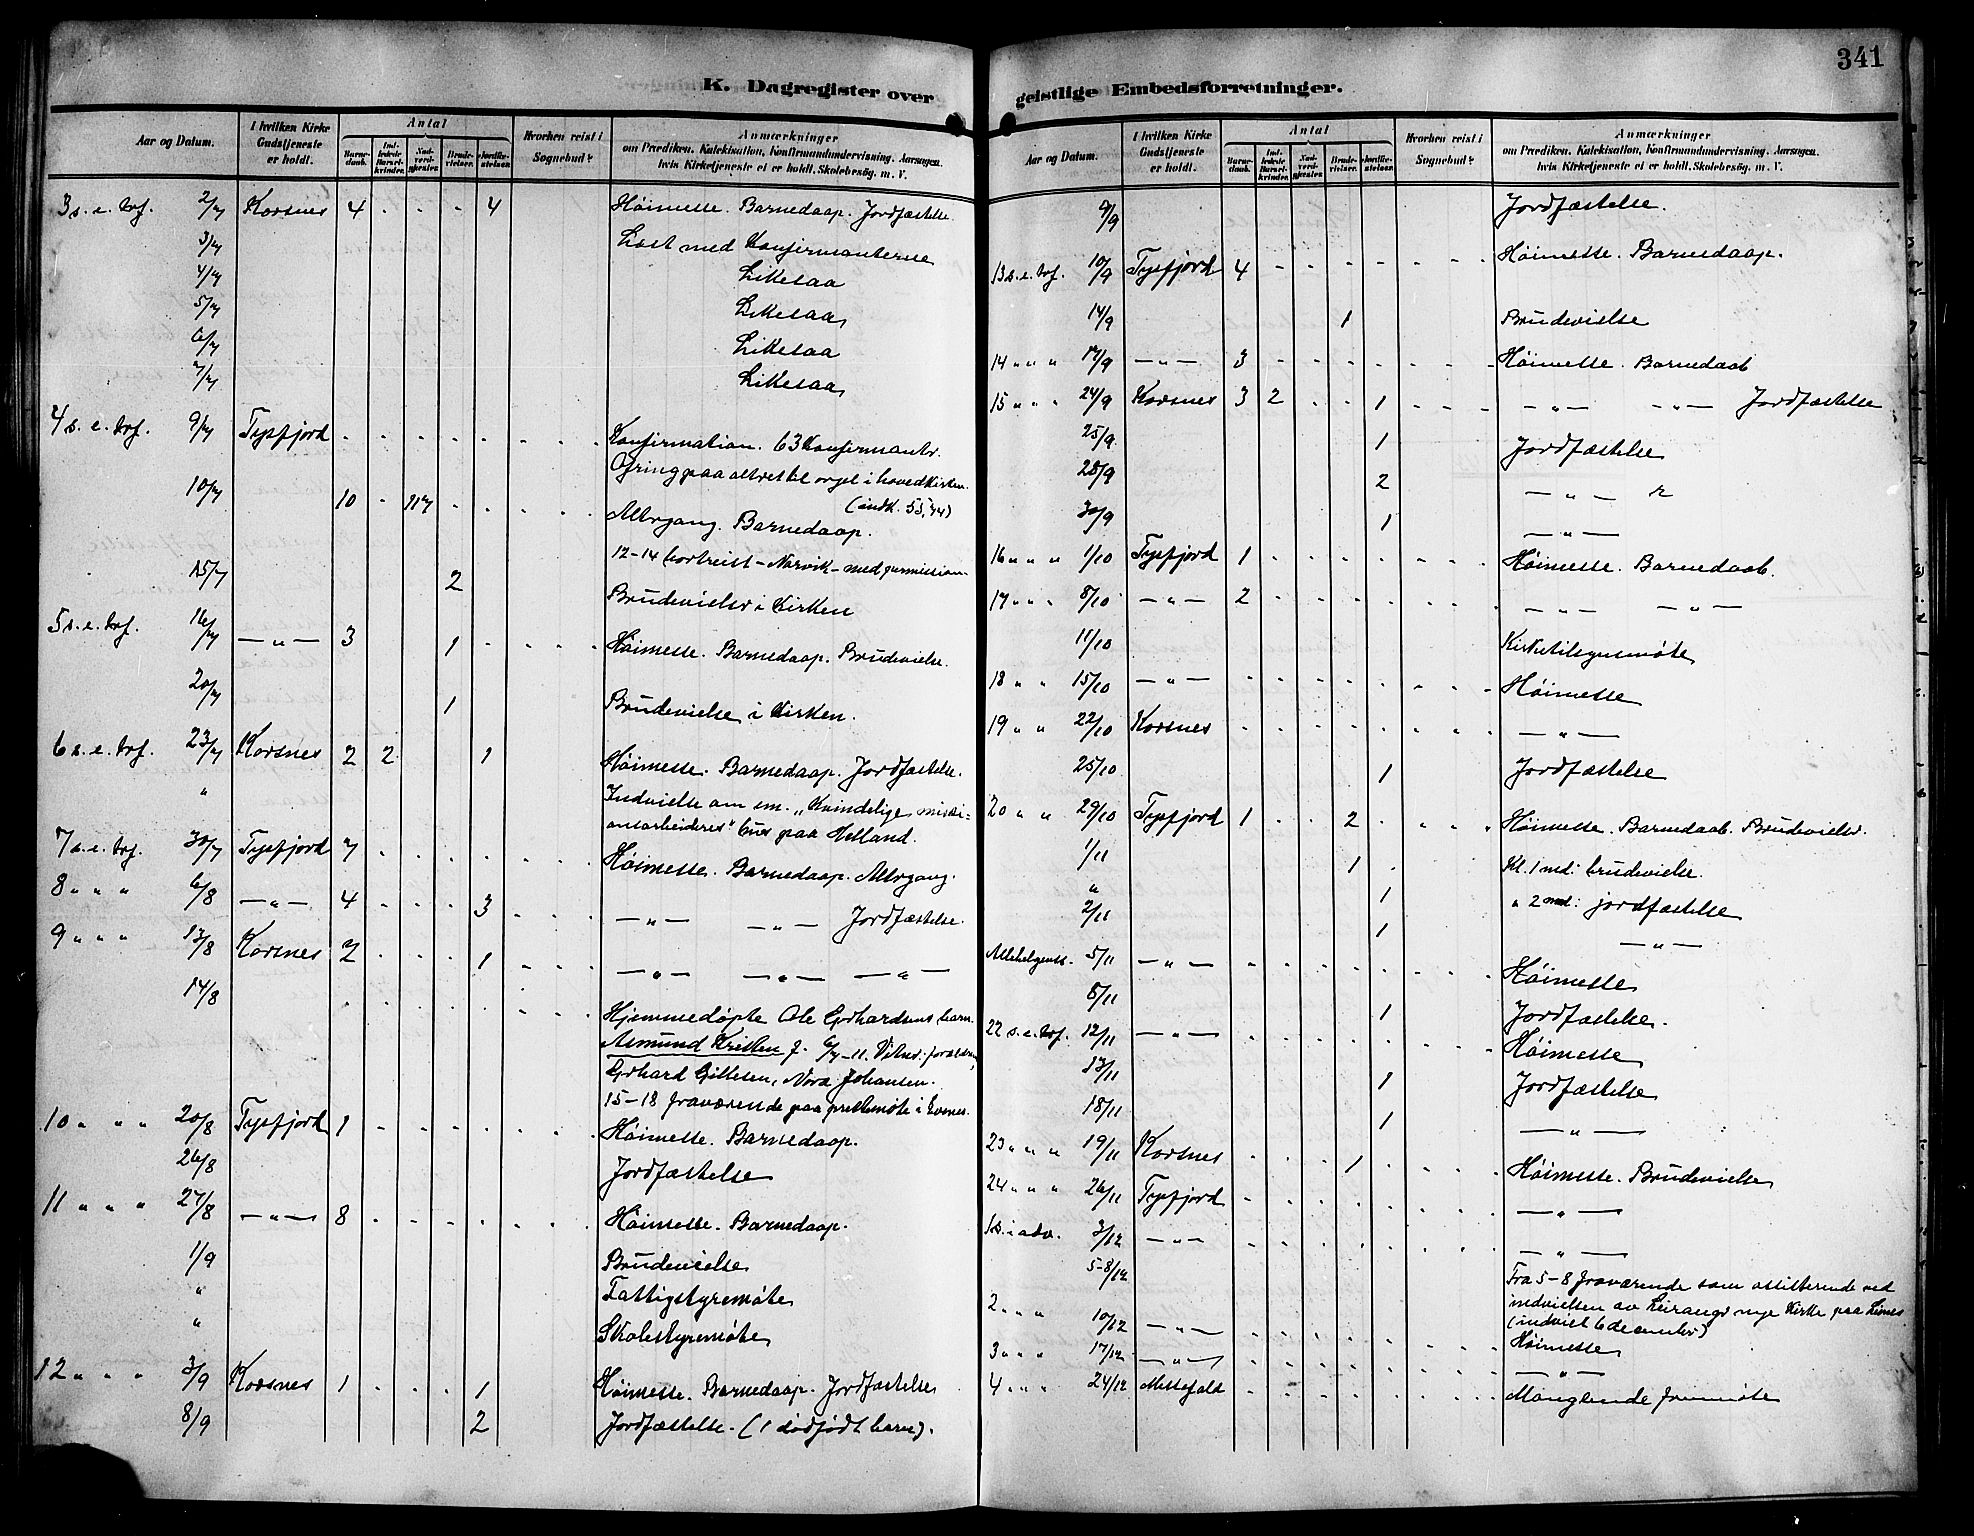 341
K. Dagregister over
Aar og Datum.
I hvilken Kirke Gudstjeneste er holdt.
Antal
Barne-daab.
Ind-ledede Barsel-kvinder.
Nad-verd-gjester.
Brude-vielser.
Jordfæ-stelser.
Hvorhen reist i Sognebud?
Anmærkninger
om Prædiken, Katekisation, Konfirmandundervisning. Aarsagen,
hvis Kirketjeneste ei er holdt, Skolebesøg, m. V.
3 s. e. trf. 2/7 Korsnes 4 . . . 4 Høimesse. Barnedaap. Jordfæstelse.
3/7 Læst med konfirmanterne
4/7 Likesaa
5/7 Likesaa
6/7 Likesaa
7/7 Likesaa
4 s. e. trf. 9/7 Tysfjord Konfirmation. 63 konfirmanter.
Ofring paa altret til orgel i hovedkirken.
(indk. 55,44)
10/7 10 - 117 Altergang. Barnedaap.
12-14 bortreist - Narvik - med permission
15/7 2 Brudevielser i kirken
5 s. e. trf. 16/7 — " — 3 1 Høimesse. Barnedaap. Brudevielse.
20/7 1 Brudevielse i kirken.
6 s. e. trf. 23/7 Korsnes 2 2 1 Høimesse. Barnedaap. Jordfæstelse.
" Indvielse om em. „Kvindelige missi-
onsarbeideres" hus paa Helland.
7 s. e. trf. 30/7 Tysfjord 7 Høimesse. Barnedaap. Altergang.
8 " " " 6/8 — " — 4 3 — " — — " — Jordfæstelse.
9 " " " 13/8 Korsnes 2 1 — " — — " — — " —
14/8 Hjemmedøpte Ole Gerhardsens barn
Asmund Kristen f. 6/7-11. Vitner: forældrene,
Gerhard Gittesen, Nora Johansen.
15-18 fraværende paa prestemøte i Evenes.
10 " " " 20/8 Tysfjord 1 Høimesse. Barnedaap.
26/8 Jordfæstelse
11 " " " 27/8 — " — 8 Høimesse. Barnedaap.
1/9 Brudevielse
" Fattigstyremøte
" Skolestyremøte
12 " " " 3/9 Korsnes 1 1 Høimesse. Barnedaap. Jordfæstelse
8/9 2 Jordfæstelse. (1 dødfødt barn).
geistlige Embedsforretninger.
Aar og Datum.
I hvilken Kirke Gudstjeneste er holdt.
Antal
Barne-daab.
Ind-ledede Barsel-kvinder.
Nad-verd-gjester.
Brude-vielser.
Jordfæ-stelser.
Hvorhen reist i Sognebud?
Anmærkninger
om Prædiken, Katekisation, Konfirmandundervisning. Aarsagen,
hvis Kirketjeneste ei er holdt, Skolebesøg, m. V.
9/9 Jordfæstelse.
13 s. e. trf. 10/9 Tysfjord 4 Høimesse. Barnedaap.
14/9 1 Brudevielse
14 " " " 17/9 — " — 3 Høimesse. Barnedaab
15 " " " 24/9 Korsnes 3 2 . . 1 — " — — " — Jordfæstelse
25/9 1 Jordfæstelse
28/9 2 — " — r
30/9 1 — " —
16 " " " 1/10 Tysfjord 1 Høimesse. Barnedaab.
17 " " " 8/10 — " — 2 — " — — " —
11/10 Kirketilsynsmøte
18 " " 15/10 — " — Høimesse
19 " " 22/10 Korsnes — " —
25/10 1 Jordfæstelse
20 " " 29/10 Tysfjord 1 . . 2 Høimesse. Barnedaab. Brudevielser.
1/11 1 Kl. 1 md: brudevielse.
" 1 " 2 md: jordfæstelse
2/11 1 — " —
Allehelgenss. 5/11 — " — Høimesse
8/11 1 Jordfæstelse.
22 s. e. trf. 12/11 — " — Høimesse
13/11 1 Jordfæstelse
18/11 1 — " —
23 " " " 19/11 Korsnes 1 Høimesse. Brudevielse
24 " " " 26/11 Tysfjord — " —
1 s. i adv. 3/12 — " — — " —
5-8/12 Fra 5-8 fraværende som assisterende ved
indvielsen av Leirangers nye kirke paa Leines
(indviet 6 december)
2 " " 10/12 — " — Høimesse
3 " " 17/12 — " — — " —
4 " " 24/12 Messefald Manglende fremmøte